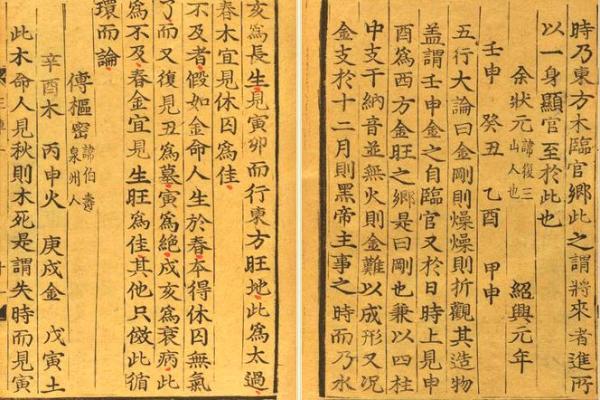 時乃東方木臨官鄉此之謂將來者進所
以一身顯官至於此也
余狀元 諱復三山人也 紹興元年
壬申 癸丑 乙酉 甲申
五行大論曰金剛則燥燥則折觀其造物
蓋謂壬申金之自臨官又於日時上見申
酉為西方金旺之鄉是曰剛也兼以四柱
中支干納音並無火則金難以成形又況
金支於十二月則黑帝主事之時而乃水
亥為長生見寅夘而行東方旺地此為太過
春木宜見休囚為佳
不及者假如金命人生於春本得休囚無氣
了而又復見丑為墓寅為絕戌亥為衰病此
為不及春金宜見生旺為佳其他只倣此循
環而論
傅樞密 諱伯壽泉州人
辛酉木 丙申火 庚戌金 戊寅土
此木命人見秋則木死是謂失時而見寅